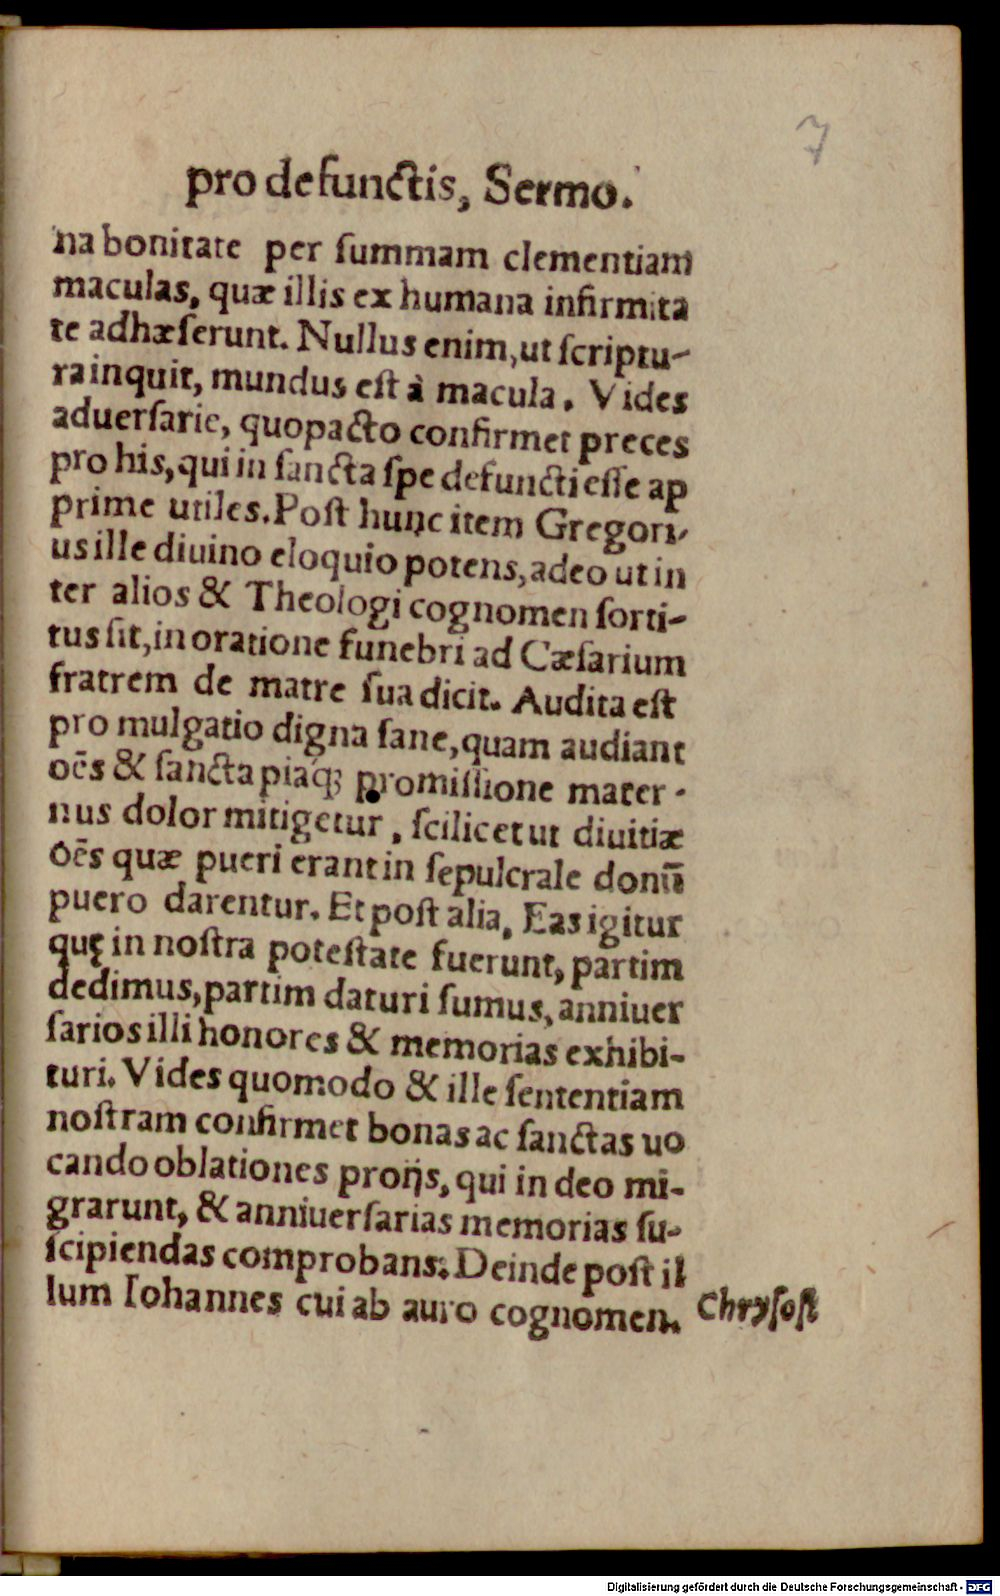 7
pro defunctis, Sermo.
na bonitate per ſummam clementiam
maculas, quæ illis ex humana infirmita
te adhæſerunt. Nullus enim, ut ſcriptu-
ra inquit, mundus eſt à macula. Vides
aduerſarie, quopacto confirmet preces
pro his, qui in ſancta ſpe defuncti eſſe ap
prime utiles. Poſt hunc item Gregori-
us ille diuino eloquio potens, adeo ut in
ter alios & Theologi cognomen ſorti-
tus ſit, in oratione funebri ad Cæſarium
fratrem de matre ſua dicit. Audita eſt
pro mulgatio digna ſane, quam audiant
oēs & ſancta piaq́; promiſſione mater-
nus dolor mitigetur, ſcilicet ut diuitiæ
oēs quæ pueri erant in ſepulcrale donū
puero darentur. Et poſt alia, Eas igitur
quę in noſtra poteſtate fuerunt, partim
dedimus, partim daturi ſumus, anniuer
ſarios illi honores & memorias exhibi-
turi. Vides quomodo & ille ſententiam
noſtram confirmet bonas ac ſanctas uo
cando oblationes pro ijs, qui in deo mi-
grarunt, & anniuerſarias memorias ſu-
ſcipiendas comprobans. Deinde poſt il
lum Iohannes cui ab auro cognomen.
Chryſoſt
Digitalisierung gefördert durch die Deutsche Forschungsgemeinschaft - DFG